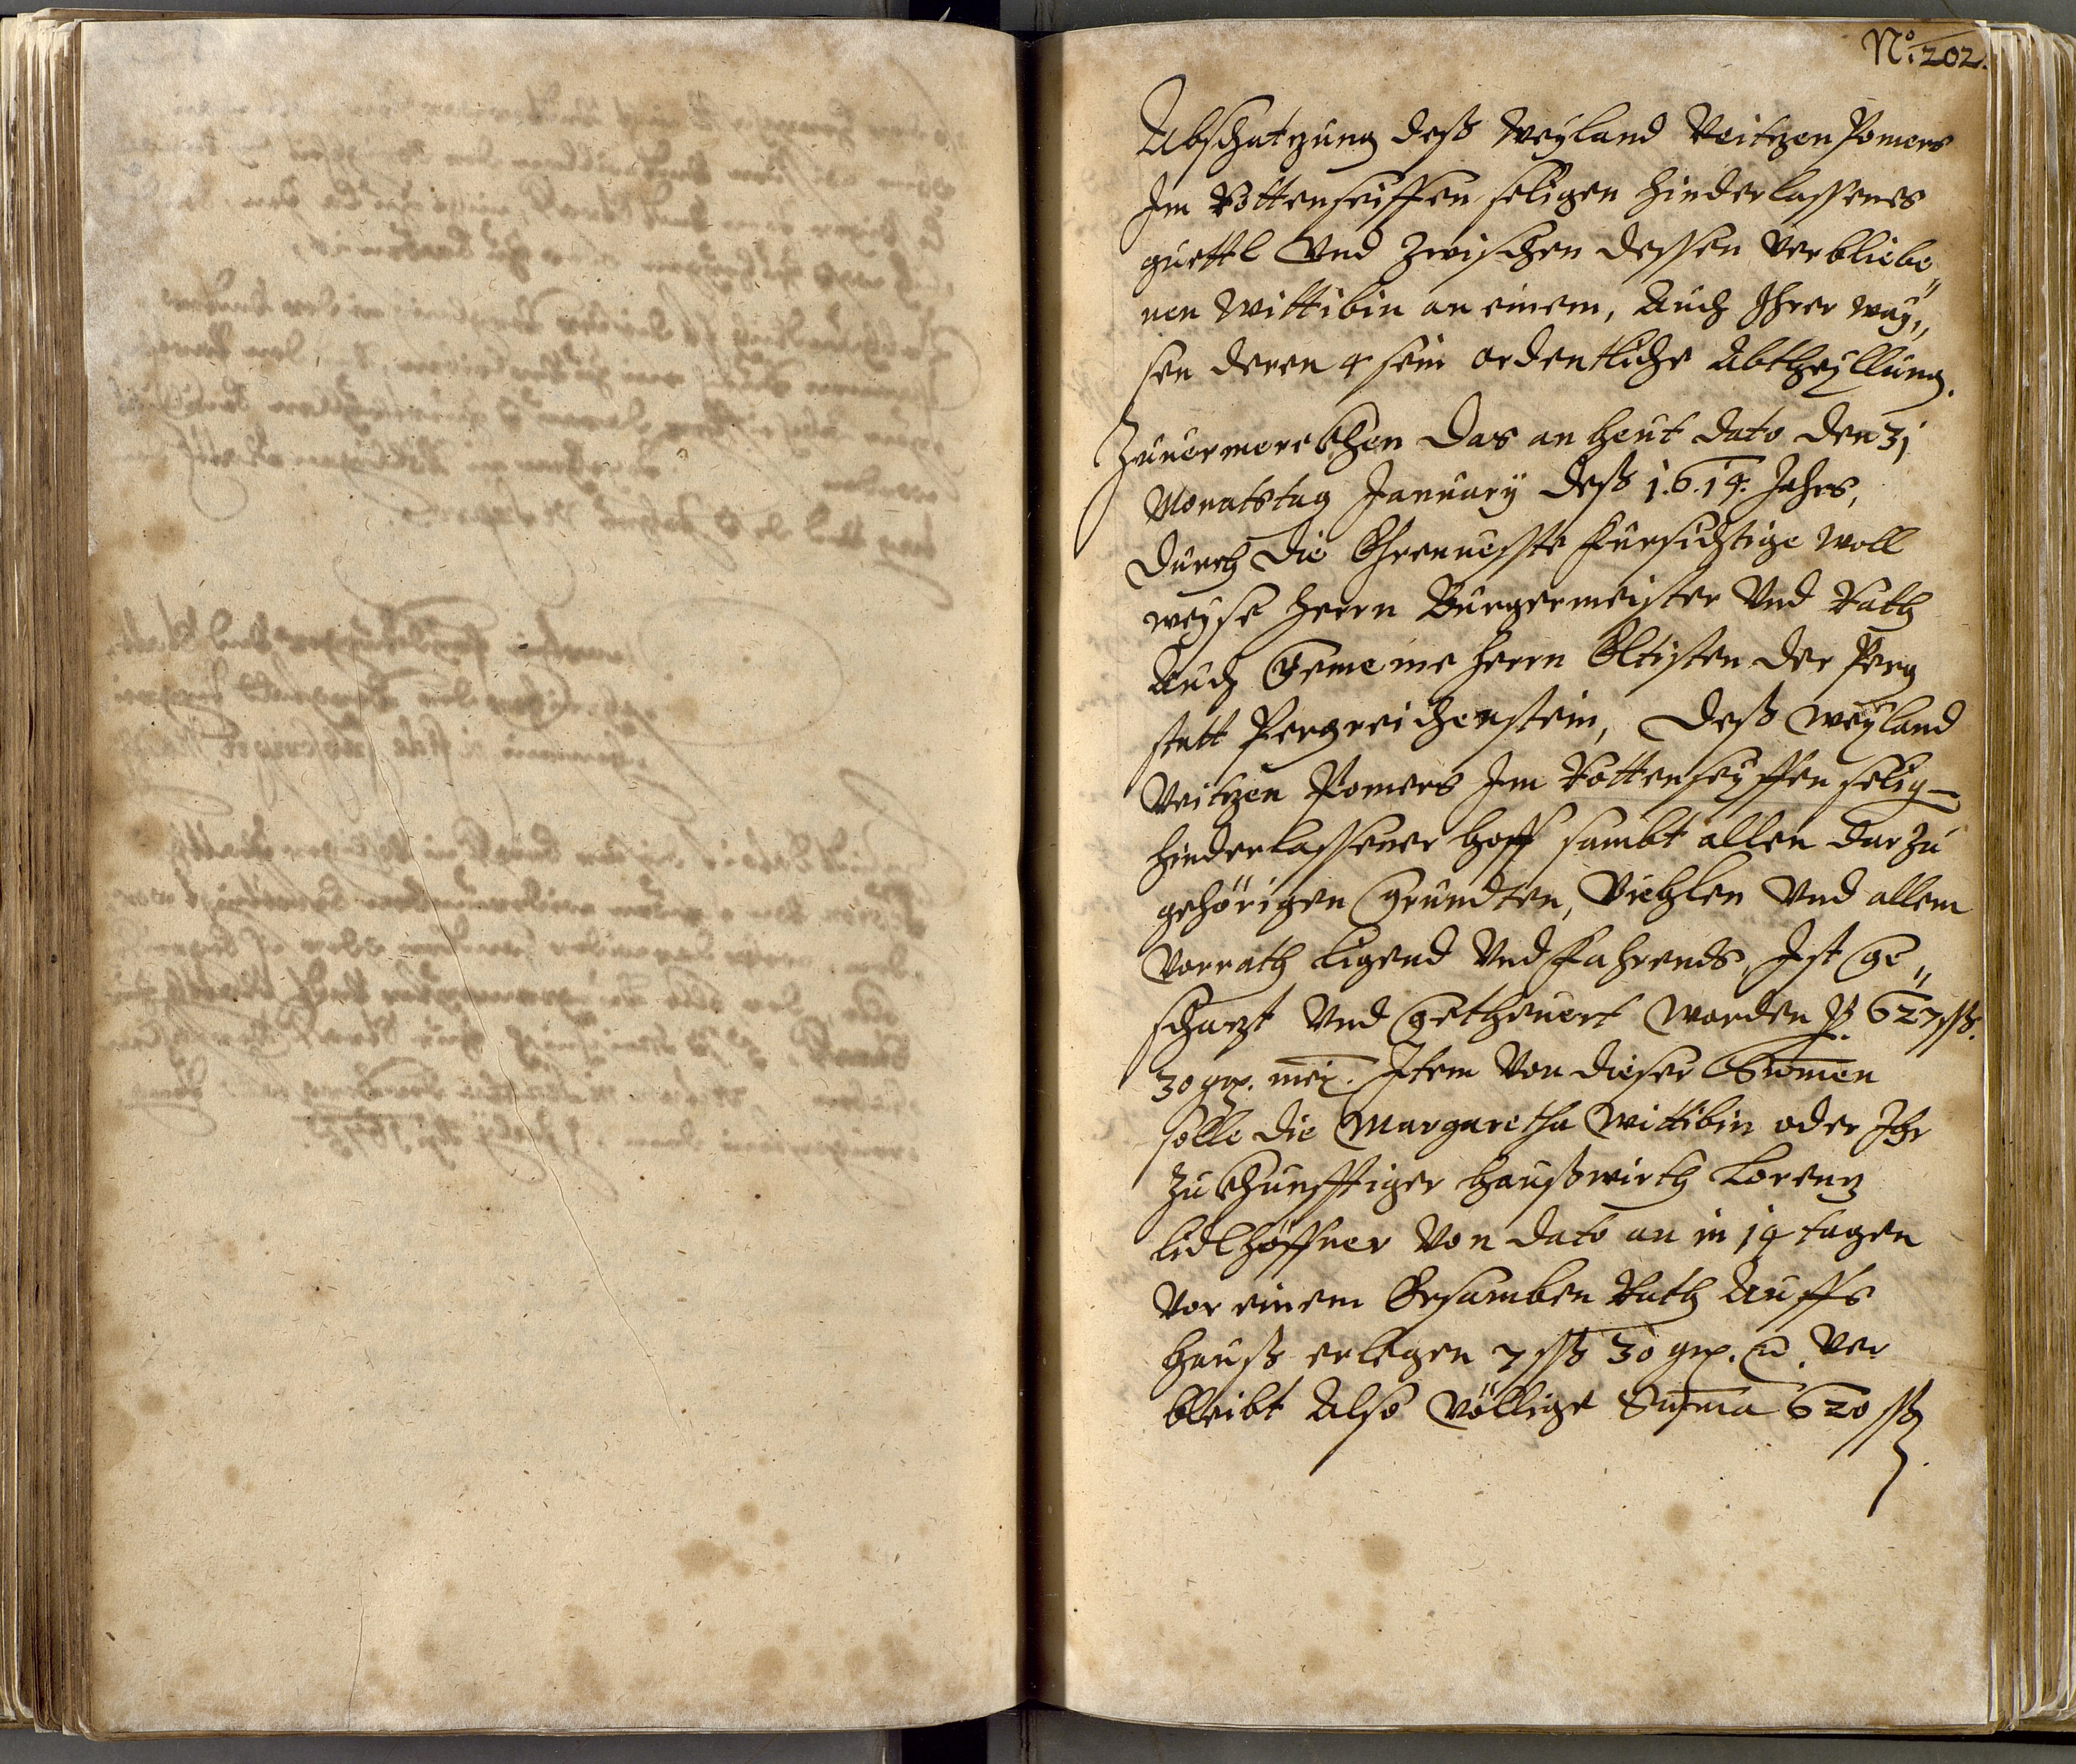 No: 202.
Abschatzung deß Weyland Veitzen Pomers
Im Rottenseiffen seligen hinderlassenes
guettl Vnd zwischen dessen verbliebe„
nen Wittibin an einem, Auch Ihrer Way„
sen deren 4 sein ordentliche Abtheyllung.
Zuuermerckhen das an heut dato den 31
Monatstag January deß 1.6.14. Jahrs,
durch die Ehrnuesste fürsichtige woll
weyse herrn Burgermeister Vnd Rath
Auch Gemeine herrn Eltisten der Perg
statt Pergreichenstein, deß weyland
Veitzen Pomers Im Rottenseyffen selig
hinderlassener hoff sambt allen darzu
gehörigen Grundten, Viehlen Vnd allem
Vorrath ligend Vnd fahrends, Ist Ge„
schazt Vnd Getheuert worden P. 627 ßß.
30 gr. mei. Item Von dieser Sumen
solle die Margaretha Wittibin oder Ihr
zukhunfftiger haußwirth Lorenz
Lidlhöffner Von dato an in 14 tagen
Vor einem Ersamben Rath Auffs
hauß erlegen 7 ßß 30 gr. m. Ver
bleibt Also völlige Suma 620 ßß